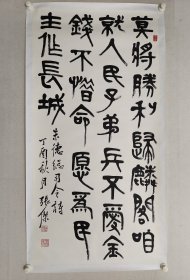 莫將勝利歸麟閣咱
就人民子弟兵不愛金
錢不惜命愿為民
主作長城
朱德總司令詩
丁酉秋月張傑